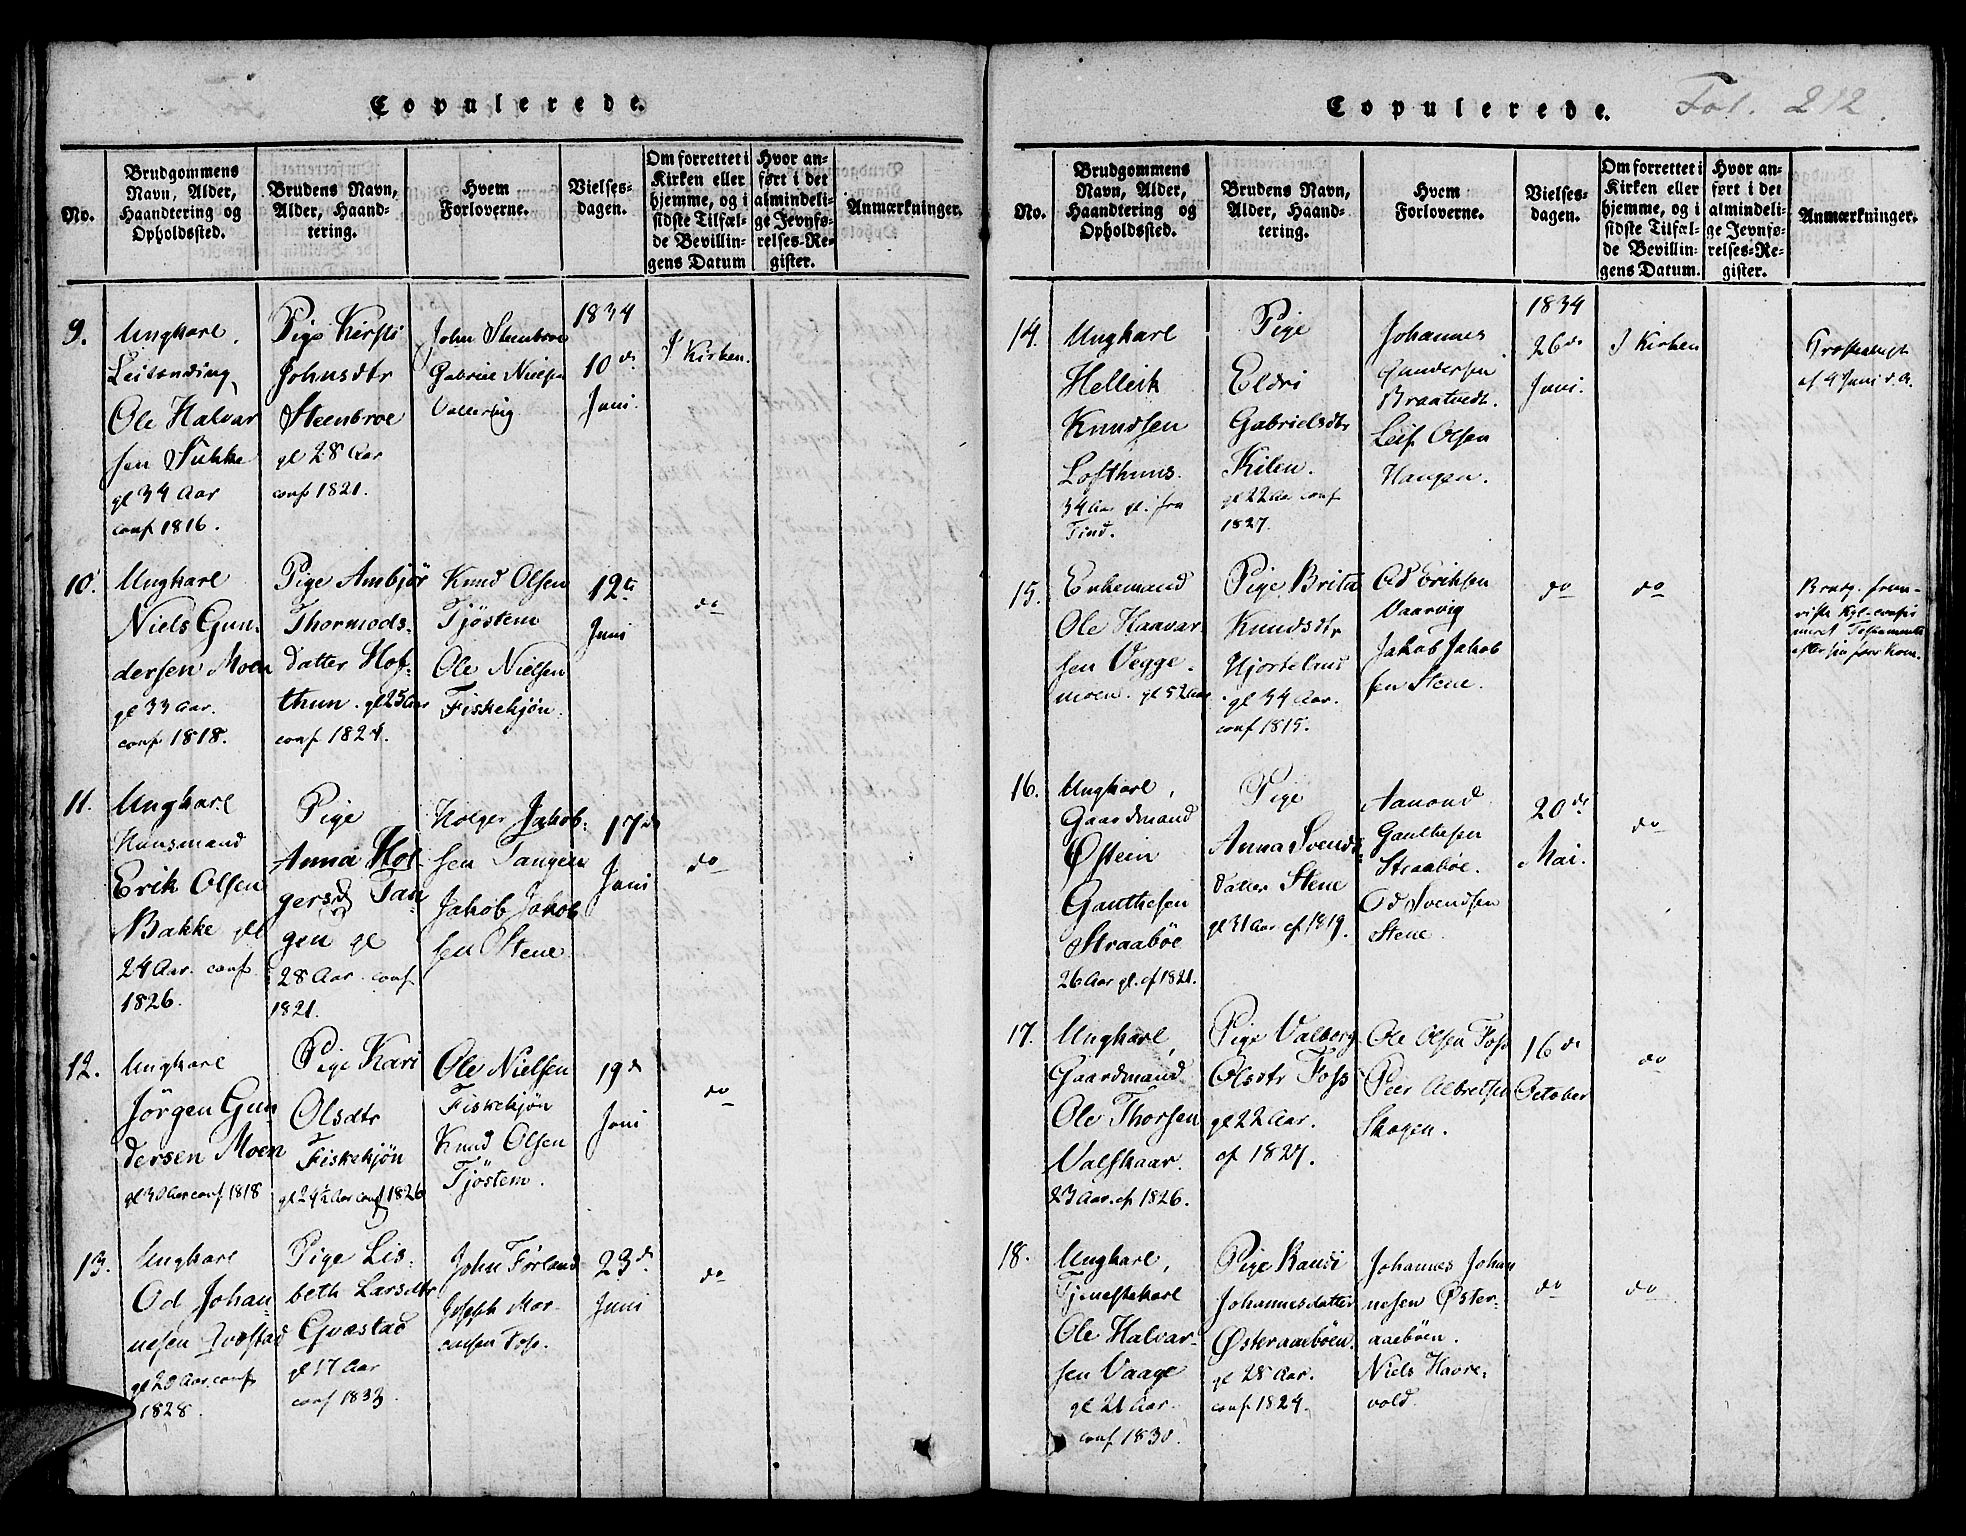 Copulerede.
No.
Brudgommens
Navn, Alder,
Haandtering og
Opholdssted.
Brudens Navn,
Alder, Haand-
tering.
Hvem
Forloverne.
Vielses-
dagen.
Om forrettet i
Kirken eller
hjemme, og i
sidste Tilfæl-
de Bevillin-
gens Datum
Hvor an-
ført i det
almindeli-
ge Jevnfø-
relses-Re-
gister.
Anmærkninger.
9.
Ungkarl,
Leilending,
Ole Halvar
sen Sukke
gl 34 Aar
conf 1816.
Pige Kirsti
Johnsdtr
Steenbroe
gl 28 Aar
conf 1821.
John Steenbroe
Gabriel Nielsen
Vallervig
1834
10de
Juni.
I Kirken.
10.
Ungkarl
Niels Gun-
dersen Moen
gl 33 Aar.
conf 1818.
Pige Ambjør
Thormods-
datter Hof-
thun. gl 25 Aar
conf 1824.
Knud Olsen
Tjøstem
Ole Nielsen
Fiskekjøn.
12te
Juni
do
11.
Ungkarl
Huusmand
Erik Olsen
Bakke gl
24 Aar. conf.
1826.
Pige
Anna Hol
gersd Tan
gen gl
28 Aar. conf
1821.
Holger Jakob-
sen Tangen
Jakob Jakob
sen Stene
17de
Juni
do
12.
Ungkarl
Jørgen Gun
dersen Moen
gl 30 Aar conf 1818
Pige Kari
Olsdtr
Fiskekjøn
gl 24½ Aar conf 1826
Ole Nielsen
Fiskekjøn
Knud Olsen
Tjøstem.
19de
Juni
do
13.
Ungkarl
Od Johan
nesen Qvæstad
gl 20 Aar. conf
1828.
Pige Lis-
beth Larsdtr
Qvæstad
gl 17 Aar
conf 1833.
John Førland
Joseph Mor-
tensen Foss.
23de
Juni
do
Copulerede.
Fol. 212.
No.
Brudgommens
Navn, Alder,
Haandtering og
Opholdssted.
Brudens Navn,
Alder, Haand-
tering.
Hvem
Forloverne.
Vielses-
dagen.
Om forrettet i
Kirken eller
hjemme, og i
sidste Tilfæl-
de Bevillin-
gens Datum.
Hvor an-
ført i det
almindeli-
ge Jevnfø-
relses-Re-
gister.
Anmærkninger.
14.
Ungkarl
Helleik
Knudsen
Lofthuus.
34 Aar gl. fra
Tind.
Pige
Eldri
Gabrielsdtr
Kilen.
gl 22 Aar conf
1827.
Johannes
Gundersen
Braatvedt.
Leif Olsen
Haugen.
1834
26de
Juni.
I Kirken
af 9 Juni d. A.
15.
Enkemand
Ole Haavar
sen Vegge-
moen. gl 52 Aar
Pige Brita
Knudsdtr
Hjortelrud
gl 34 Aar.
conf 1815.
Od Eriksen
Vaarvig
Jakob Jakob
sen Stene.
do
do
Brudg. frem-
viste
efter sin forr Kone.
16.
Ungkarl,
Gaardmand
Østein
Gauthesen
Straabøe
26 Aar gl. cf 1821.
Pige
Anna Svends
datter Stene
gl 31 Aar cf 1819.
Aamond
Gauthesen
Straabøe.
Od Svendsen
Stene.
20de
Mai.
do
17.
Ungkarl,
Gaardmand
Ole Thorsen
Valskaar.
23 Aar. cf 1826.
Pige Valborg
Olsdtr Foss
gl 22 Aar.
cf 1827.
Ole Olsen Foss
Peer Albretsen
Skogen.
16de
October
do
18.
Ungkarl,
Tjenestekarl
Ole Halvar-
sen Vaage
gl 21 Aar.
conf 1830.
Pige Randi
Johannesdatter
Østeraaebøen.
gl 28 Aar.
conf 1824.
Johannes Johan
nesen Øster-
aaebøen.
Niels Havre-
vold.
do
do